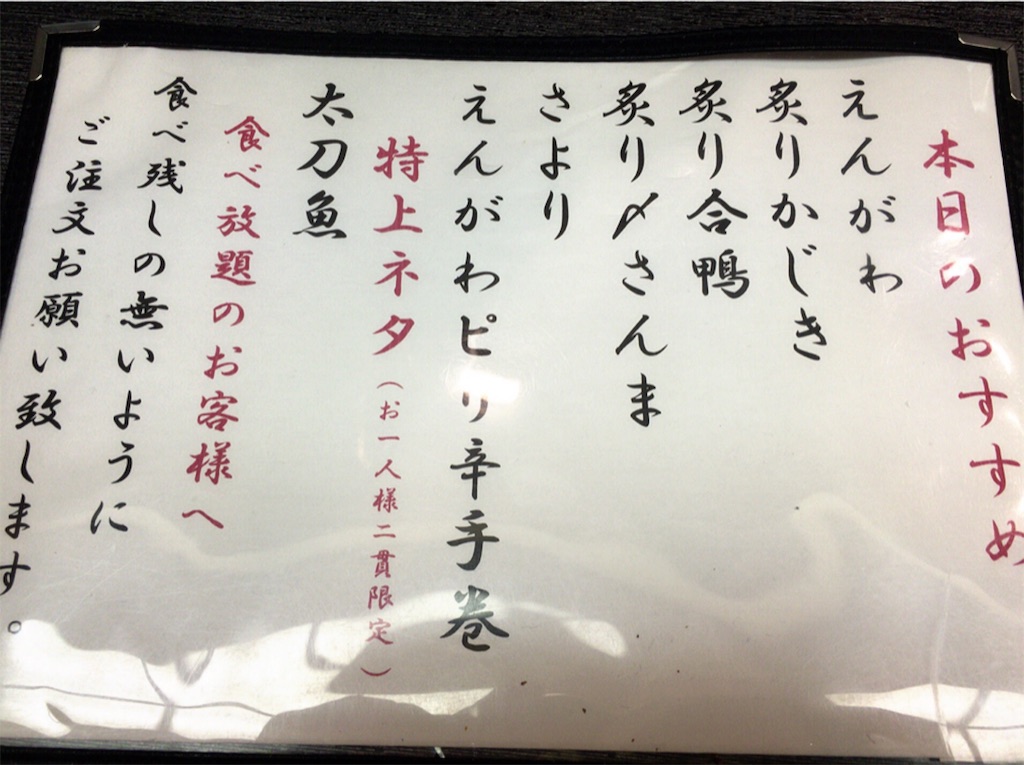 本日のおすすめ
えんがわ
炙りかじき
炙り合鴨
炙り〆さんま
さより
えんがわピリ辛手巻
特上ネタ（お一人様二貫限定）
太刀魚
食べ放題のお客様へ
食べ残しの無いように
ご注文お願い致します。